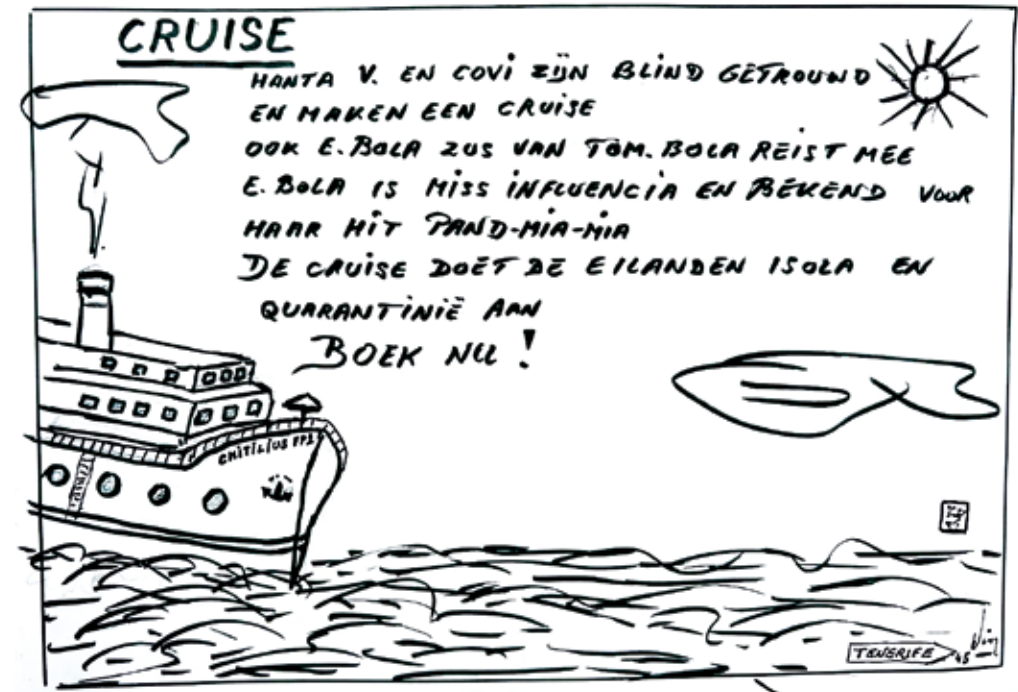 CRUISE
HANTA V. EN COVI ZIJN BLIND GETROUWD
EN MAKEN EEN CRUISE
OOK E. BOLA ZUS VAN TOM. BOLA REIST MEE
E. BOLA IS MISS INFLUENCIA EN BEKEND VOOR
HAAR HIT PAND-MIA-MIA
DE CRUISE DOET DE EILANDEN ISOLA EN
QUARANTINIË AAN
BOEK NU!
TENERIFE